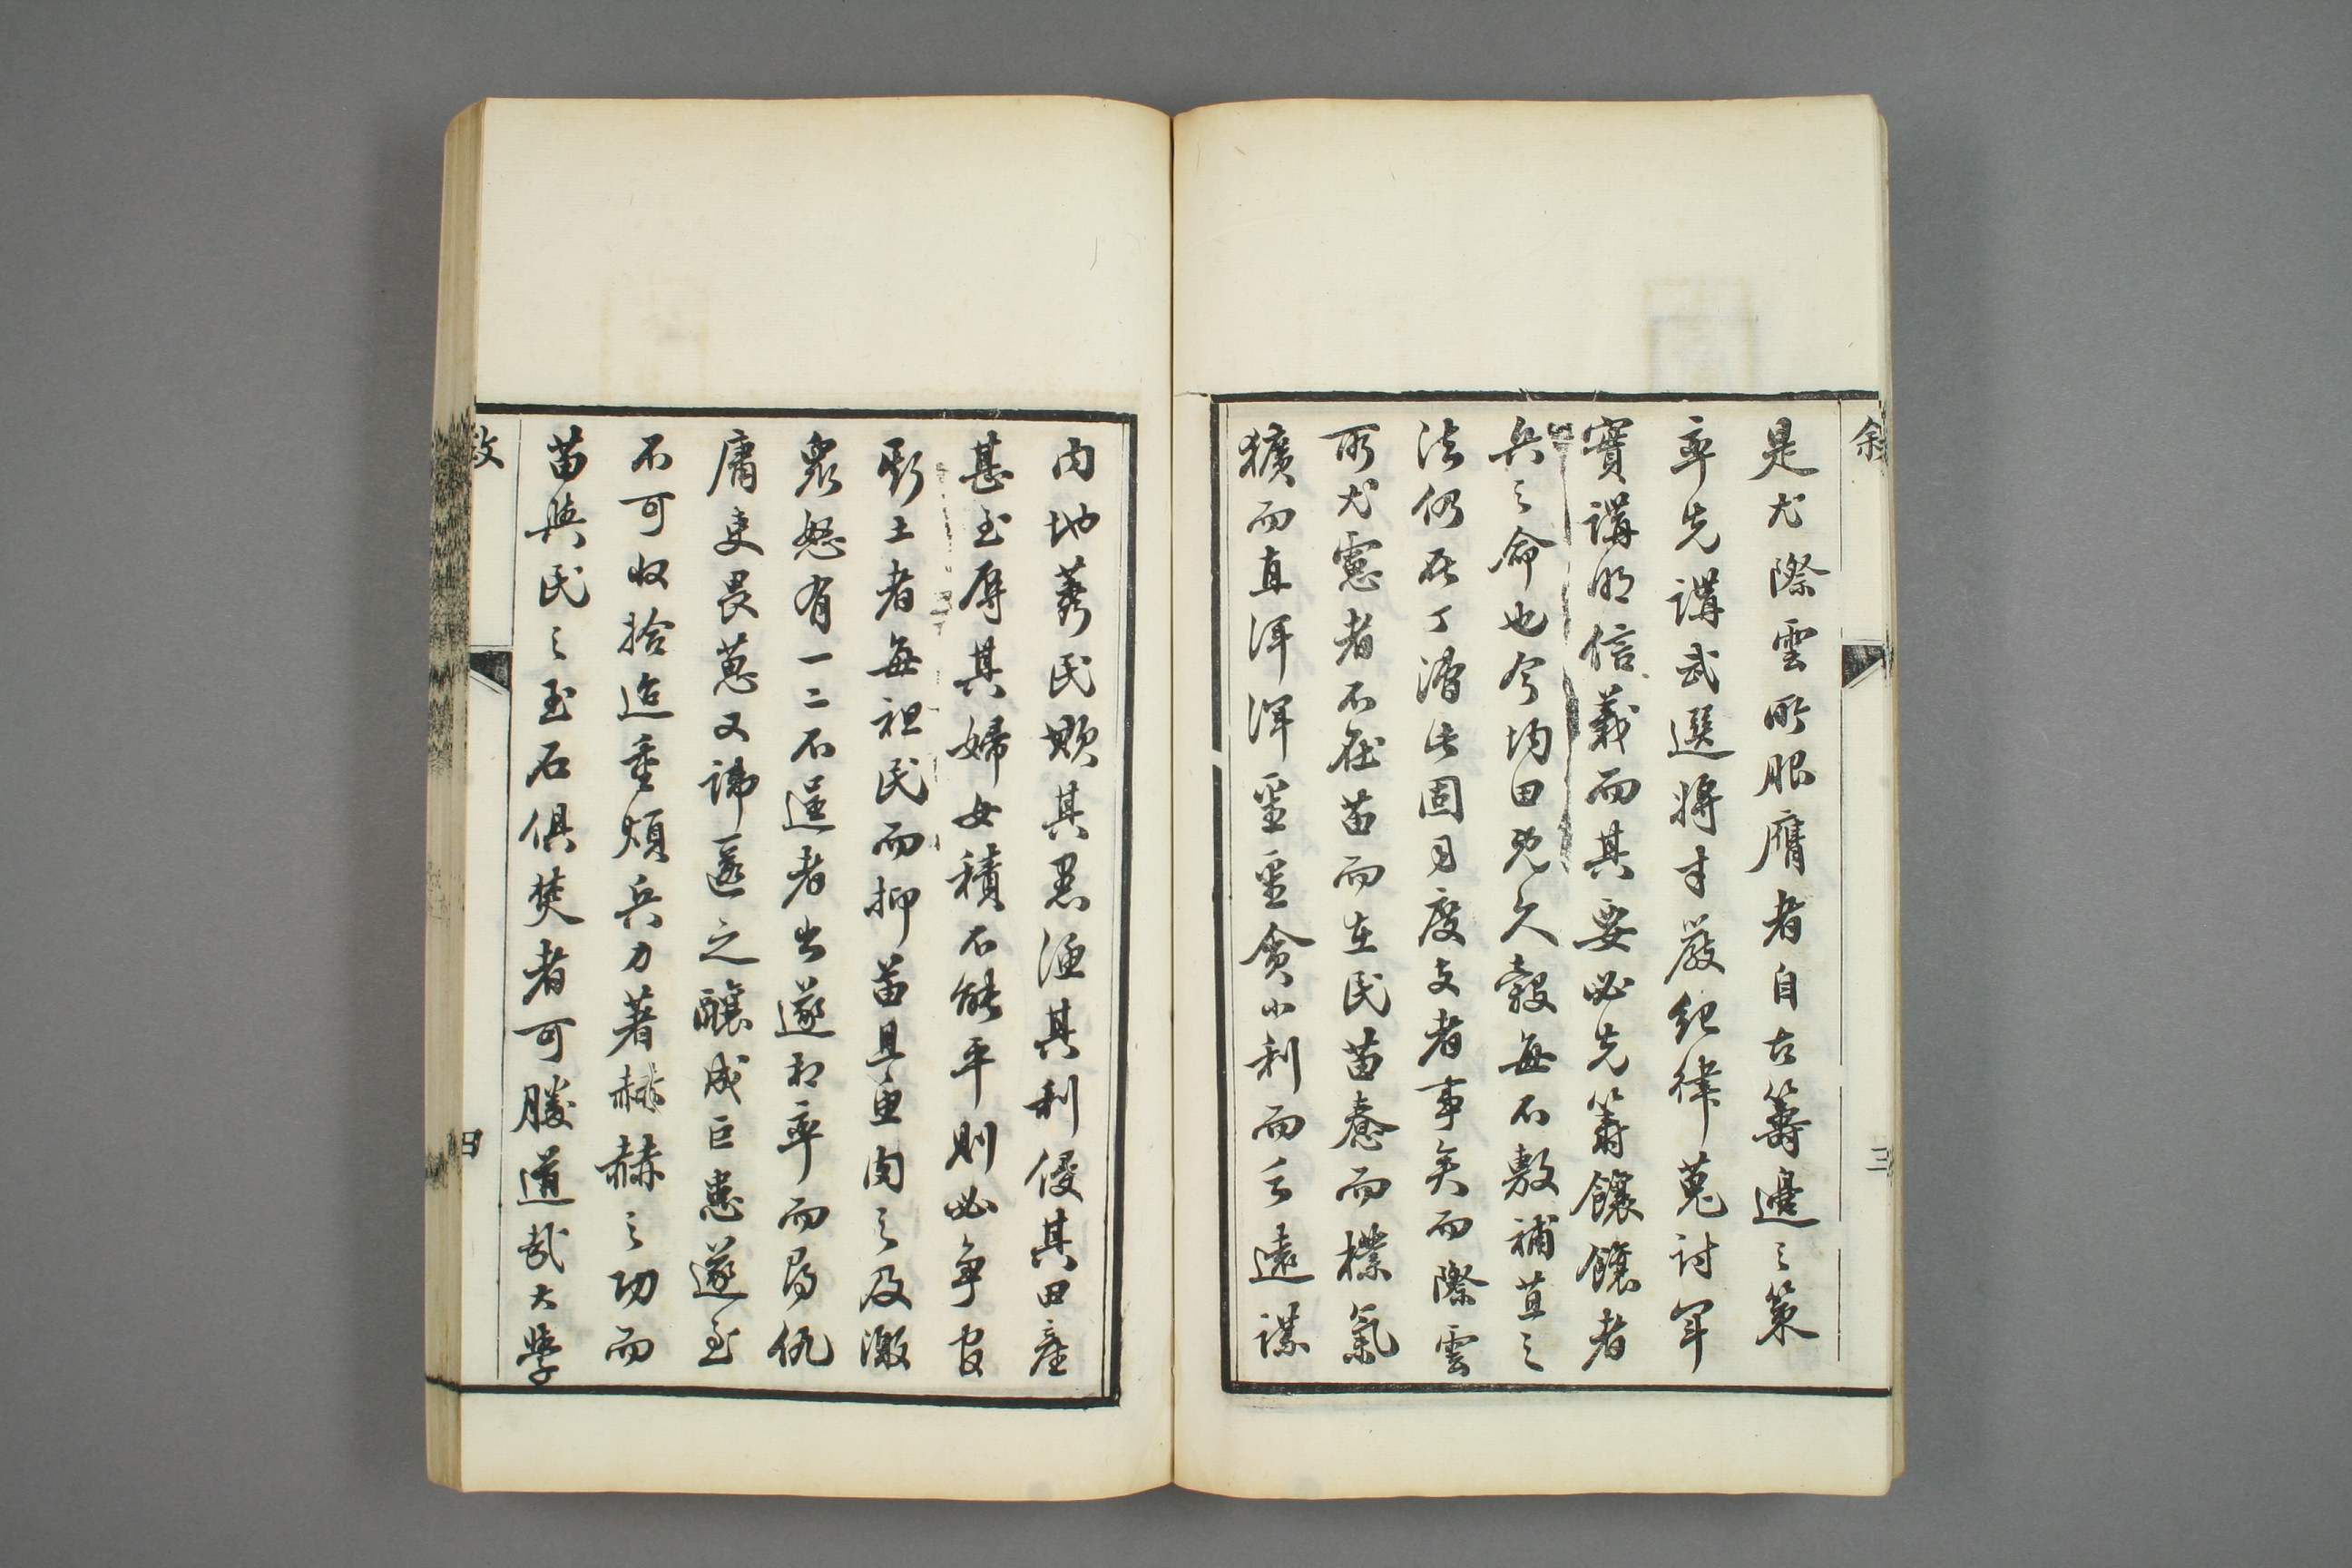 敘
三
是尤際雲所服膺者自古籌邊之策
率先講武選將才嚴紀律蒐討軍
實講明信義而其要必先籌饟饟者
兵之命也今均田既久穀每不敷補苴之
法仍在丁濟此固司度支者事矣而際雲
所尤慮者不在苗而在民苗惷而樸氣
獷而直渾渾噩噩貪小利而亡遠謀
內地莠民欺其愚漁其利侵其田產
甚至辱其婦女積不能平則必爭官
斯土者每袒民而抑苗且魚肉之及激
眾怒有一二不逞者出遂相率而尋仇
庸吏畏葸又諱匿之釀成巨患遂至
不可收拾迨重煩兵力著赫赫之功而
苗與民之玉石俱焚者可勝道哉大學
敘
四